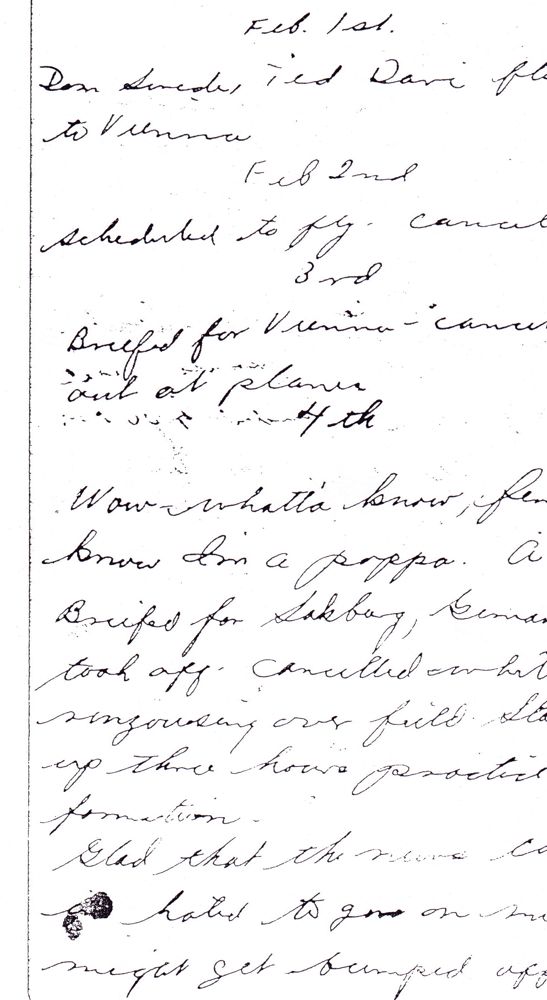 Feb. 1st.
Don Swede, Ted Davi fl
to Vienna
Feb 2nd
scheduled to fly. cancel
3rd
Breifed for Vienna - cancel
out at planes
4th
Wow - whatta know,
know Im a poppa. A
Breifed for Salzburg, German
took off. Cancelled - whil
over field. Sta
up three hours practice
formation.
Glad that the news ca
hated to go on mi
might get bumped off